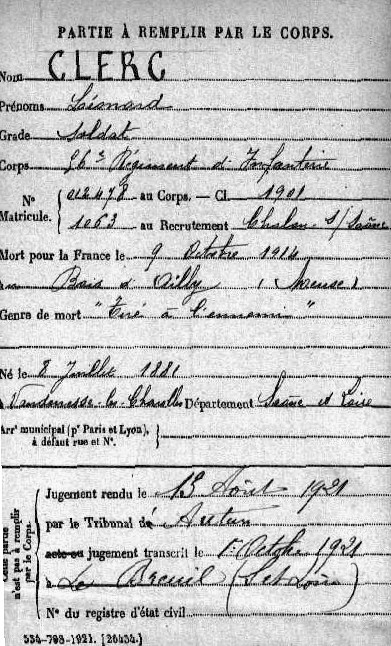 PARTIE À REMPLIR PAR LE CORPS.
Nom CLERC
Prénoms Léonard
Grade Soldat
Corps 56e Régiment d'Infanterie
N° Matricule. 012478 au Corps. — Cl. 1901
1063 au Recrutement Chalon-s/Saône
Mort pour la France le 9 Octobre 1914
à Bois d'Ailly (Meuse)
Genre de mort "Tué à l'ennemi"
Né le 8 Juillet 1881
à Vendenesse-les-Charolles Département Saône et Loire
Arrt municipal (pr Paris et Lyon), à défaut rue et N°.
Cette partie n'est pas à remplir par le Corps.
Jugement rendu le Août 1921
par le Tribunal de Autun
acte ou jugement transcrit le 1er Octobre 1921
à Le Breuil (S et Loire)
N° du registre d'état civil
534-708-1921. [26434.]